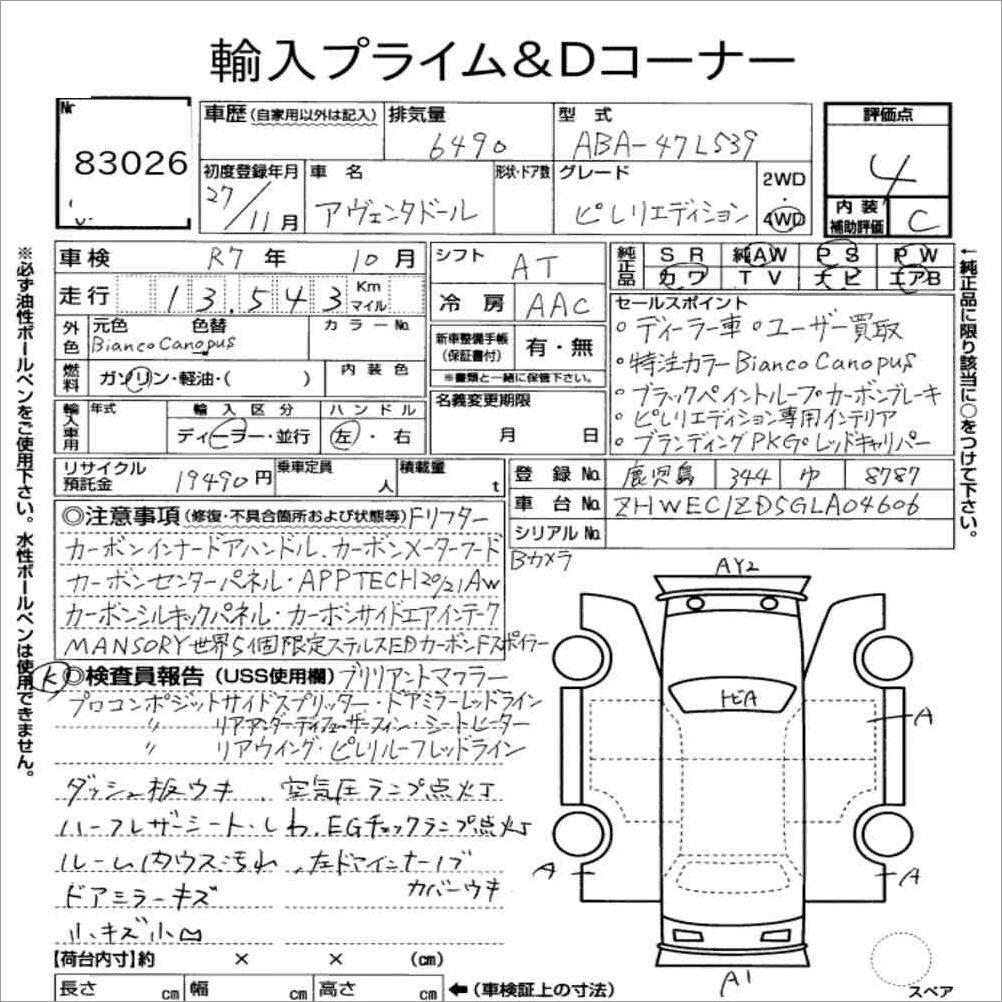 輸入プライム&Dコーナー
Nr
83026
車歴 (自家用以外は記入)
排気量
6490
型 式
ABA-47L539
評価点
4
初度登録年月
27/11月
車 名
アヴェンタドール
形状・ドア数
グレード
ピレリエディション
2WD
・
4WD
内 装
補助評価
C
車検 R7年 10月
走行 13,543 Km
マイル
シフト AT
冷 房 AAC
純正品
SR 純AW PS PW
カワ TV ナビ エアB
外色
元色 色替
Bianco Canopus
カラーNo.
燃料
ガソリン・軽油・( )
内 装 色
新車整備手帳
(保証書付)
有・無
※書類と一緒に保管下さい。
名義変更期限
月 日
輸入車用
年式
輸 入 区 分
ディーラー・並行
ハ ン ド ル
左・右
セールスポイント
○ディーラー車 ○ユーザー買取
○特注カラー Bianco Canopus
○ブラックペイントルーフ カーボンブレーキ
○ピレリエディション専用インテリア
○ブランディングPKG ○レッドキャリパー
リサイクル
預託金
19490円
乗車定員
人
積載量
t
登 録 No. 鹿児島 344 ゆ 8787
車 台 No. ZHWEC1ZD5GLA04606
シリアル No.
◎注意事項 (修復・不具合箇所および状態等) Fリフター
カーボンインナードアハンドル、カーボンメーターフード
カーボンセンターパネル・APPTECH20/21AW
カーボンシルキックパネル・カーボンサイドエアインテーク
MANSORY世界5個限定ステルスEDカーボンFスポイラー
Bカメラ
K
◎検査員報告 (USS使用欄) ブリリアントマフラー
プロコンポジットサイドスプリッター・ドアミラーレッドライン
〃 リアアンダーディフューザーフィン・シートヒーター
〃 リアウイング・ピレリルーフレッドライン
ダッシュ板ウキ、空気圧ランプ点灯
ハーフレザーシート・しわ、EGチェックランプ点灯
ルーム内ウス汚れ、左ドアインナーノブ
カバーウキ
ドアミラーキズ
小キズ小凹
AY2
トビA
A
A
A
A1
スペア
【荷台内寸】約 × × (cm)
長さ cm 幅 cm 高さ cm ←(車検証上の寸法)
※必ず油性ボールペンをご使用下さい。水性ボールペンは使用できません。
←純正品に限り該当に○をつけて下さい。